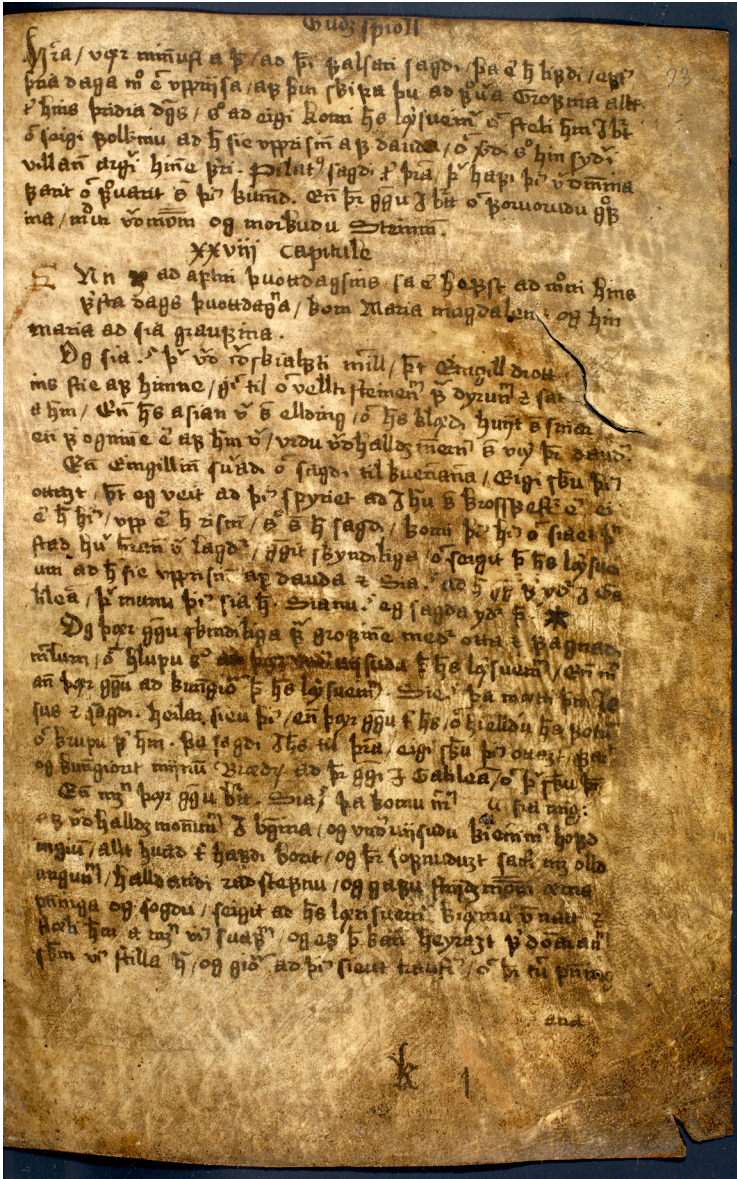 Gudz spioll
Hr̃a / vær miñust a þ̃ / ad þ̃i falsari sagdi / þa er h̃ lifdi / epť
þria daga m̃ e vpprisa / af þui skipa þu ad þ̃ua Grofina allt
t̃ h̃ins þridia dags / so ad eigi komi h̃s lærisueiñ oc steli h̃m J b̃t
oc seigi folkinu ad h̃ sie vpprisiñ af dauda / oc v̾di so hin sydri
villañ argri hiñe f̃ri. Pilatꝰ sagdi t̃ þr̃a / þ̃r hafi þ̃i vardmiña
farit oc foruarit s̃ þ̃i kuñid. Eñ þr̃ gg̃u J b̃t oc foruorudu g̊f
ina / mdr vòrdum og morkudu Steiniñ.
xxviii capitule
Enn ad aptni þuottdagsins / sa er hefst ad morni hins
fyrsta dags þuottdagana / kom Maria magdalen: og hin
maria ad sia graufina.
Og sia: þ̃ vard iordskialfti mikill / þ̃t Eingill drott
ins stie af himne / gieck til oc vellti steinenum fra dyrunum z sat
a hm̃ / Eñ h̃s asian var s̃ ellding / oc h̃s klædi huijt s̃ sniar
en fyrir ogninne er af hm̃ var / vrdu vardhalldz meñern s̃ viþ þr̃ daud
Eñ Eingilliñ suaradi oc sagdi til kueñaña / Eigi skulu þ̃i
ottazt, þ̃t eg veit ad þ̃i spyriet ad Jhu s̃ krossfestr er / ei
er h̃ hier / vpp er h̃ risiñ / so s̃ h̃ sagdi / komi þ̃i hier oc siaet þañ
stad, huar h̃añ var lagdr / gg̃it skyndiliga / oc seigit þ̃ h̃s lærisuei
um ad h̃ sie vpprisiñ af dauda z Sia: ad h̃ geingr fyrir ydr J Ga
lilea / þar munu þ̃i sia h̃. Sianu: eg sagda ydr þ̃.
Og þær gg̃u skindiliga fra grofiñe medr otta z fagnad
miklum / oc hlupu so ad þær vnduijsuda t̃ h̃s lærisueinum / Eñ m̃
añ þær gg̃u ad kungiora þ̃ h̃s lærisueinum. Sie: þa mætti þeim Je
sus z sagdi. heilar sieu þ̃i / eñ þær gg̃u t̃ h̃s / oc hielldu h̃a fotum
oc krupu fyrir hm̃. þa sagdi Jhs til þr̃a / eigi skulu þ̃i ottazt / farit
og kungiorit mijnum Brædr ad þr̃ gg̃i J Galilea / oc þar skulu þr̃
sia mig:
Eñ m̃ þær gg̃u b̃t. Sia: þa komu nockrir
af vardhalldz monnum J borgina / og vnduijsudu kiennimañ hofd
ingium / allt huad t̃ hafdi borit / og þr̃ sofnuduzt saman m̃ olld
ungum / halldandi radstefnu / og gafu striidz monnum ærna
peniga og sogdu / seigit ad h̃s lærisueinar kiæmu vm nott z
stæli hm̃ a m̃ vier suafum / og ef þ̃ kañ heyrazt fyrir domañum
skulum vier stilla h̃ / og giora ad þ̃i sieut trauster / oc þr̃ toku penning
ana
k 1
23